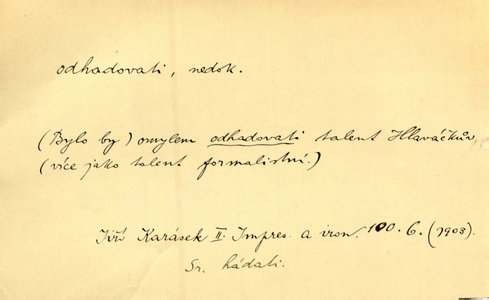 odhadovati, nedok.
(Bylo by) omylem odhadovati talent Hlaváčkův,
(více jako talent formalistní.)
Jiří Karásek II. Impres. a iron. 100. 6. (1903).
Sr. hádati.